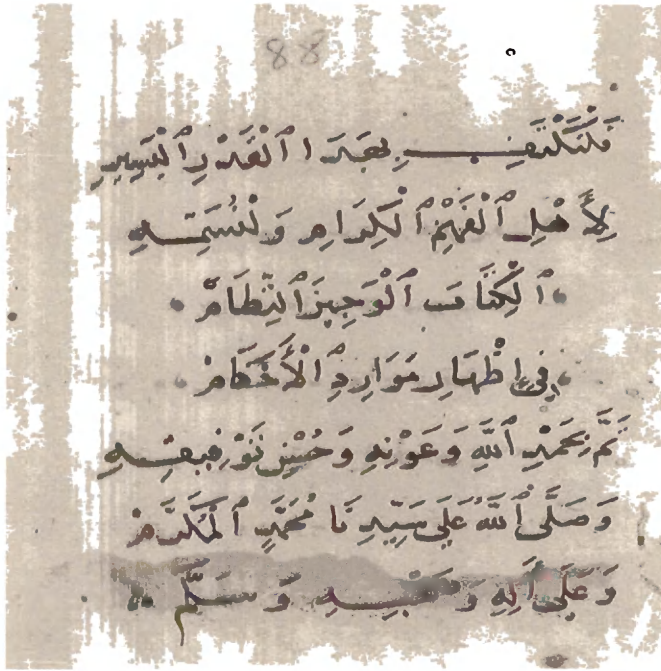 88
فَلْنَكْتَفِ بِهَذَا ٱلْقَدْرِ ٱلْيَسِيرِ
لِأَهْلِ ٱلْفَهْمِ ٱلْكِرَامِ وَلْنُسَمِّهِ
ٱلْكِتَابَ ٱلْوَجِيزَ ٱلنِّظَامْ
فِي إِظْهَارِ مَوَارِدِ ٱلْأَحْكَامْ
تَمَّ بِحَمْدِ ٱللَّهِ وَعَوْنِهِ وَحُسْنِ تَوْفِيقِهِ
وَصَلَّى ٱللَّهُ عَلَى سَيِّدِنَا مُحَمَّدٍ ٱلْمُكَرَّمْ
وَعَلَى آلِهِ وَصَحْبِهِ وَسَلَّمْ